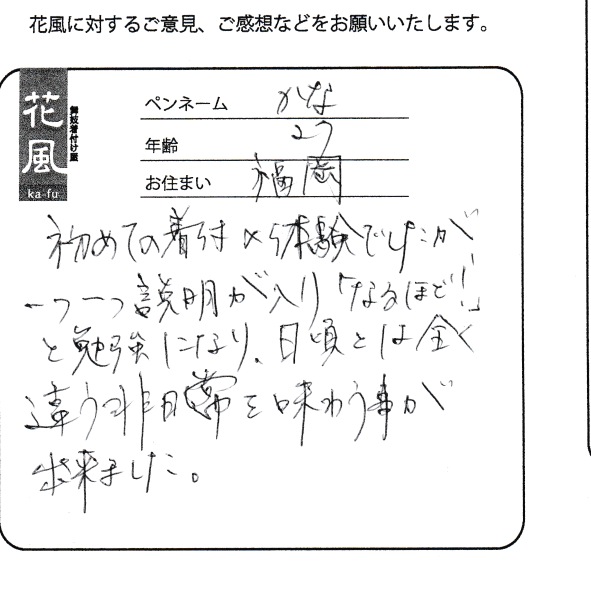 花風に対するご意見、ご感想などをお願いいたします。
花風
舞妓着付け屋
ka-fu
ペンネーム かな
年齢 27
お住まい 福岡
初めての着付け体験でしたが
一つ一つ説明が入り「なるほど!」
と勉強になり、日頃とは全く
違う非日常を味わう事が
出来ました。